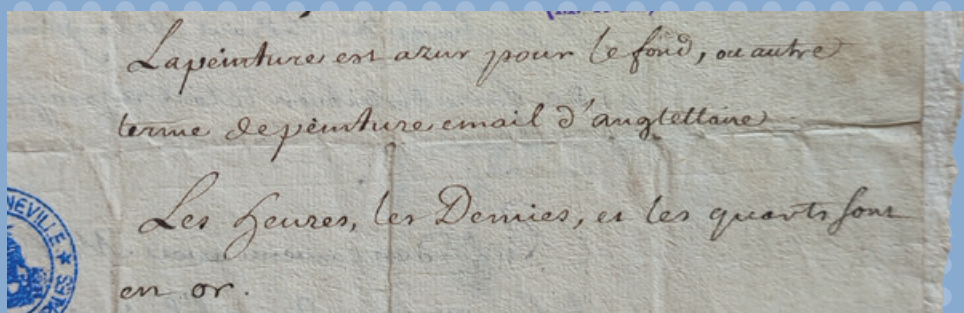 La peinture est azur pour le fond, ou autre
terme de peinture email d'anglettaire
Les heures, les Demies, et les quarts sont
en or.
NEVILLE